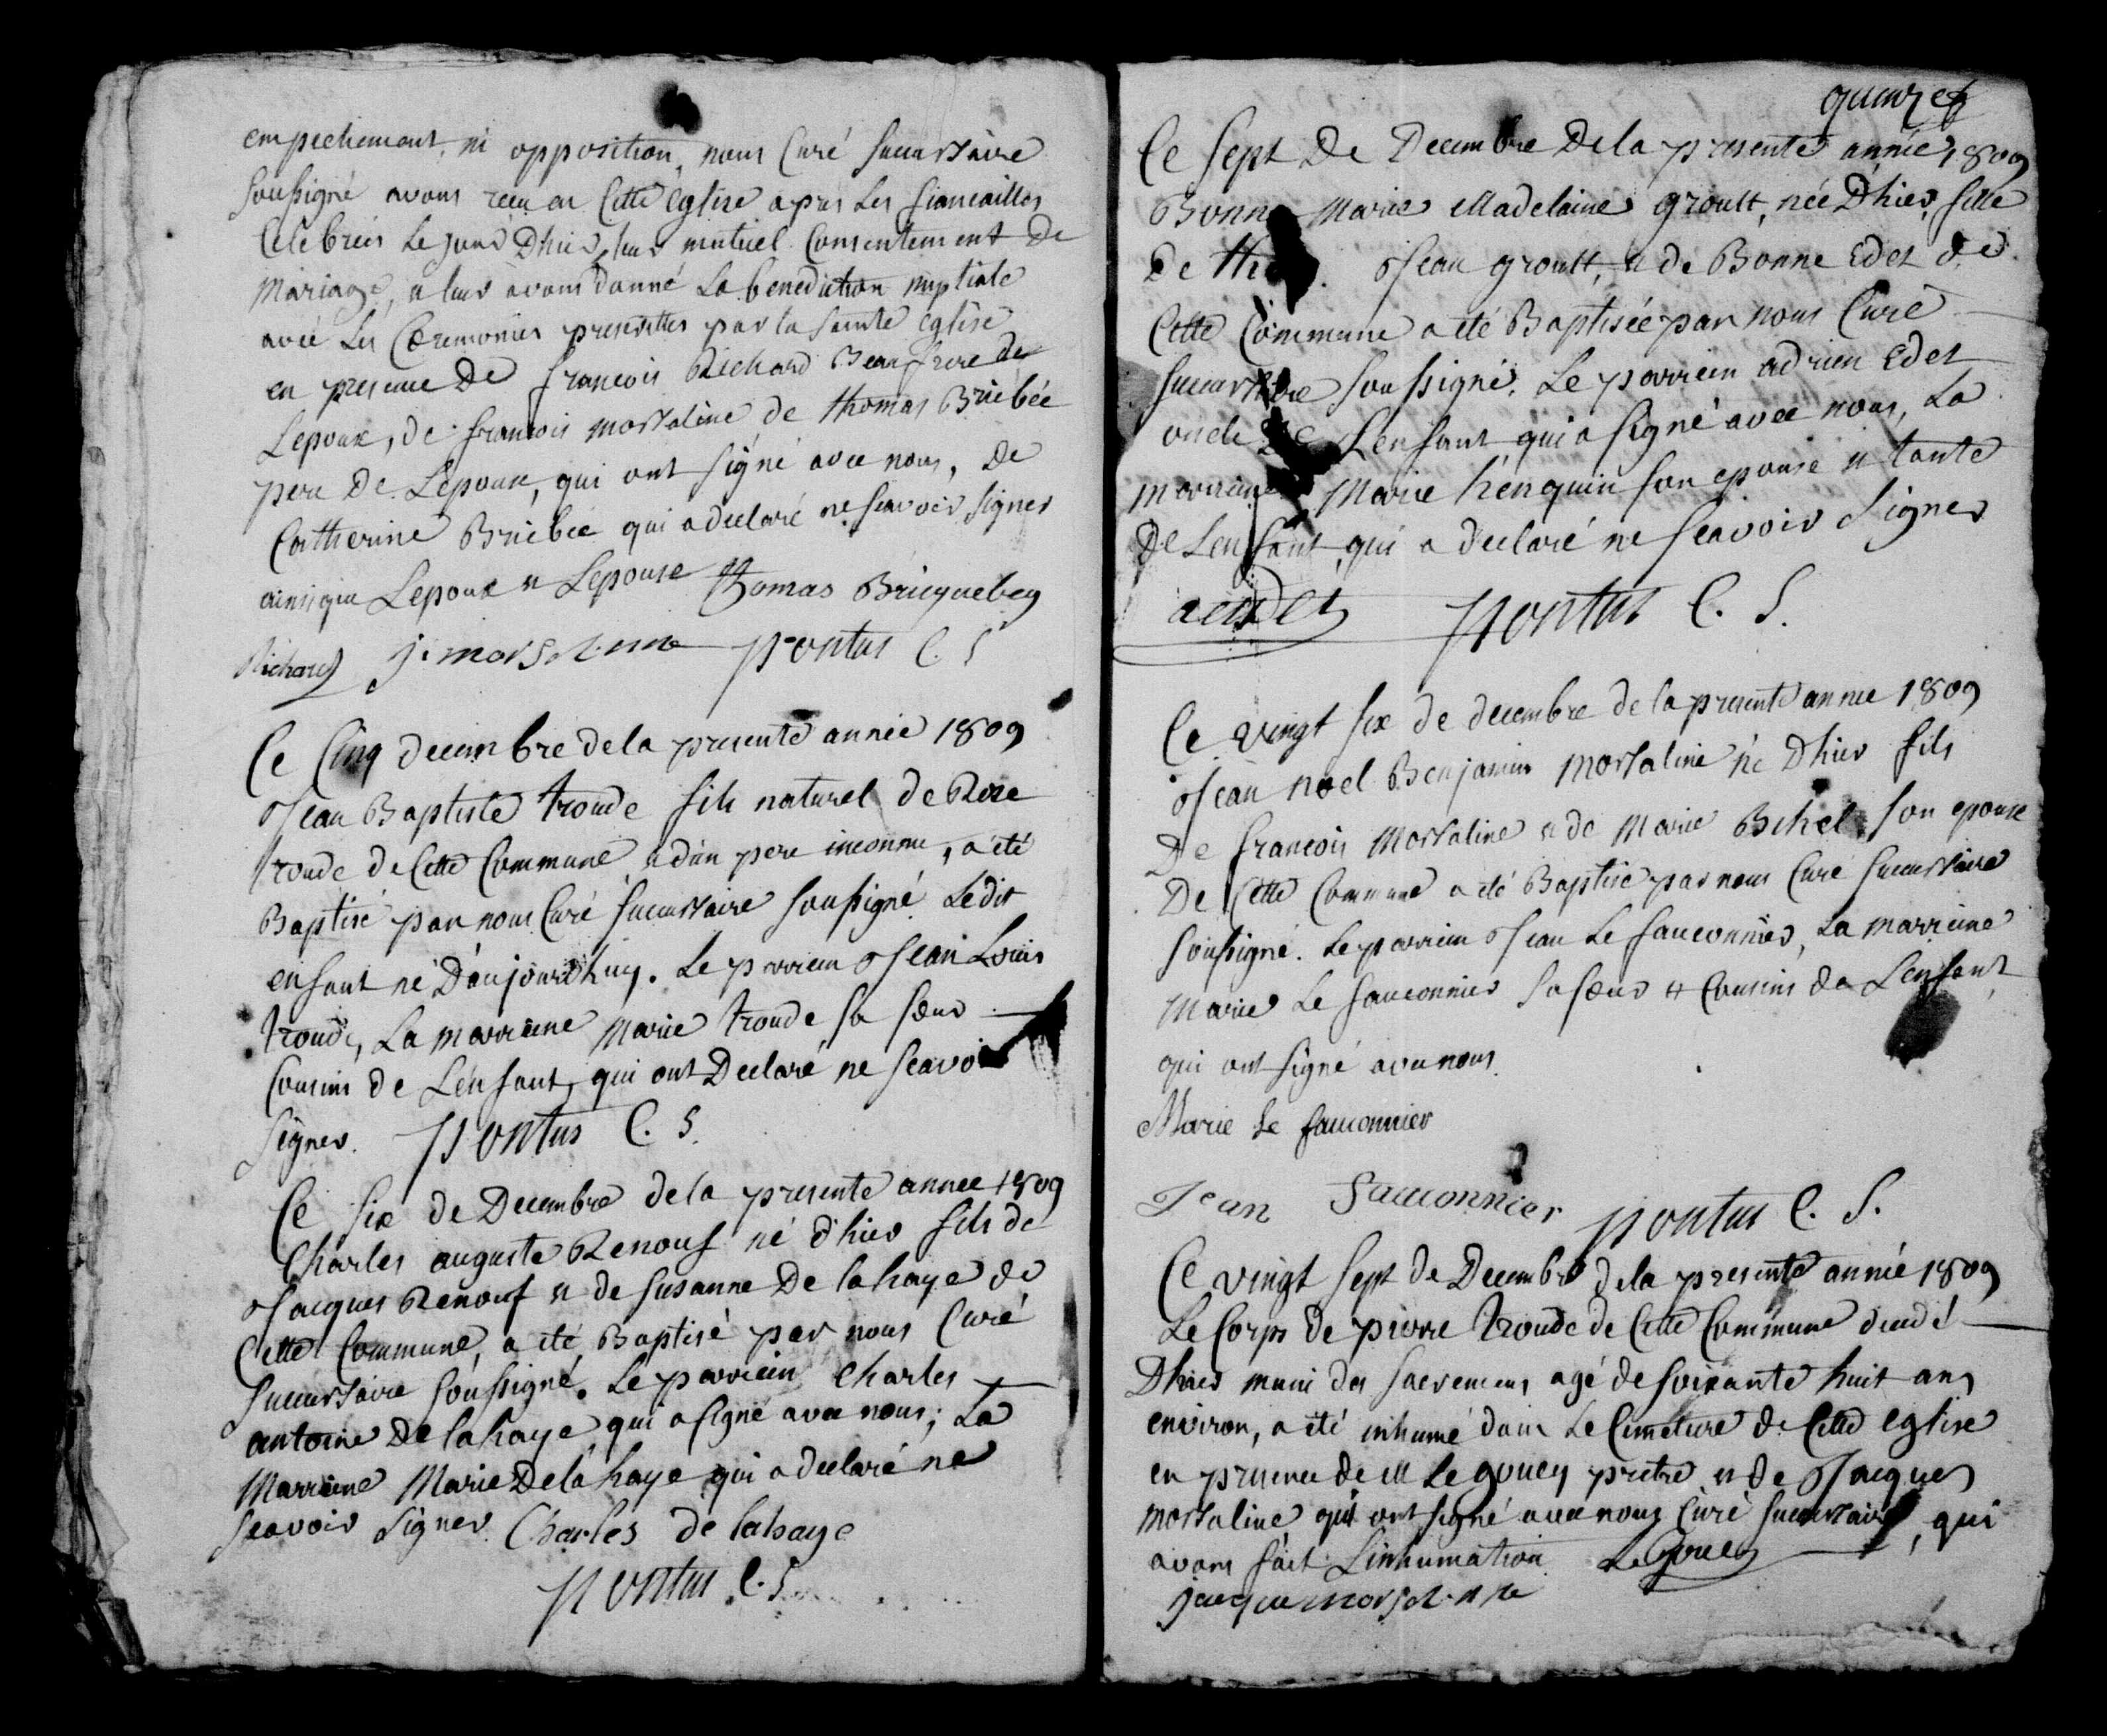 empechement, ni opposition, nous Curé succursaire
soussigné avons recu en Cette eglise apres Les fiancailles
Celebrées Le jour D'hier, leur mutuel Consentement de
Mariage, et leur avons donné La benediction nuptiale
avec Les Ceremonies prescrittes par la sainte eglise
en presence De francois Richard Beaufrere de
Lepoux, de francois morsaline de thomas Briebée
pere De Lepoux, qui ont signé avec nous, De
Catherine Briebée qui a declaré ne scavoir signer
ainsi que Lepoux et Lepouse thomas Bricquebeq
Richard j. morsaline pontus C. S
Ce Cinq decembre de la presente année 1809
Jean Baptiste troude fils naturel de Rose
troude de Cette Commune et d'un pere inconnu, a été
Baptisé par nous Curé succursaire soussigné Ledit
enfant né D'aujourdhuy. Le parrien Jean Louis
troude, La marriene Marie troude sa soeur
Cousins de L'enfant, qui ont Declaré ne scavoir
signer. pontus C. S.
Ce six de Decembre de la presente annee 1809
Charles auguste Renouf né d'hier fils de
Jacques Renouf et de susanne De la haye de
Cette Commune, a été Baptisé par nous Curé
succursaire soussigné. Le parriein Charles
antoine De lahaye qui a signé avec nous; La
Marriene Marie De la haye qui a declaré ne
scavoir signer Charles de lahaye
pontus C. S.
Ce sept De Decembre De la presente année 1809
Bonne Marie Madelaine groult, née D'hier, fille
De Jean groult, et de Bonne Edet de
Cette Commune a été Baptisée par nous Curé
succursaire soussigné. Le parriein adrien Edet
oncle De L'enfant qui a signé avec nous, La
marriene Marie henquin son epouse et tante
De L'enfant qui a declaré ne scavoir signer
aedet pontus C. S.
Ce vingt six de decembre de la presente annee 1809
Jean noel Benjamin Morsaline né D'hier fils
De francois Morsaline et de Marie Bihel, son epouse
De Cette Commune a été Baptisé par nous Curé succursaire
soussigné. Le parrien Jean Le fauconnier, La marriene
Marie Le fauconnier sa soeur et Cousins de L'enfant
qui ont signé avec nous.
Marie Le fauconnier
Jean fauconnier pontus C. S.
Ce vingt sept de Decembre de la presente année 1809
Le Corps de pierre troude de Cette Commune decedé
D'hier muni des sacremens agé de soixante huit ans
environ, a été inhumé dans Le Cimetiere de Cette eglise
en presence de M Legouey pretre et de Jacques
morsaline qui ont signé avec nous Curé succursaire, qui
avons fait L'inhumation LeGouey
jacque morsaline